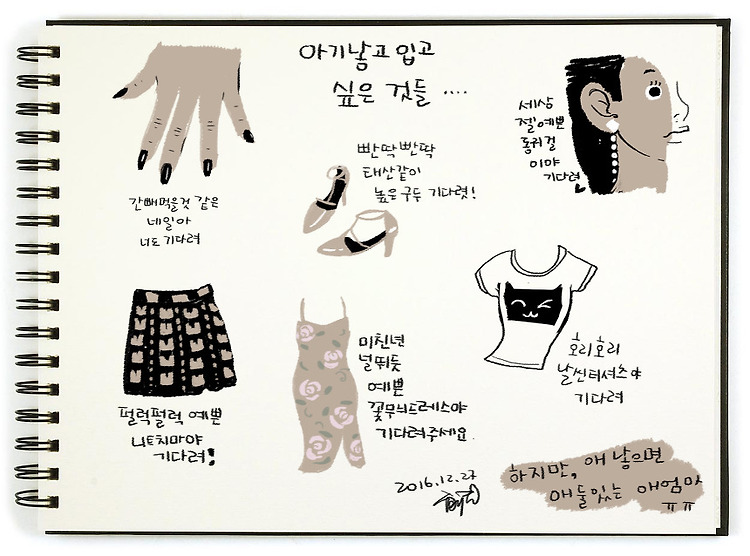 아기낳고 입고
싶은 것들 ....
간빼먹을것 같은
네일아
너도 기다려
빤딱빤딱
태산같이
높은구두 기다렷!
세상
젤예쁜
동귀걸
이야
기다려
펄럭펄럭 예쁜
니트치마야
기다려!
미친년
널뛰듯
예쁜
꽃무늬드레스야
기다려주세요.
호리호리
날씬티셔츠야
기다려
2016.12.27
하지만, 애 낳으면
애둘있는 애엄마
ㅠㅠ